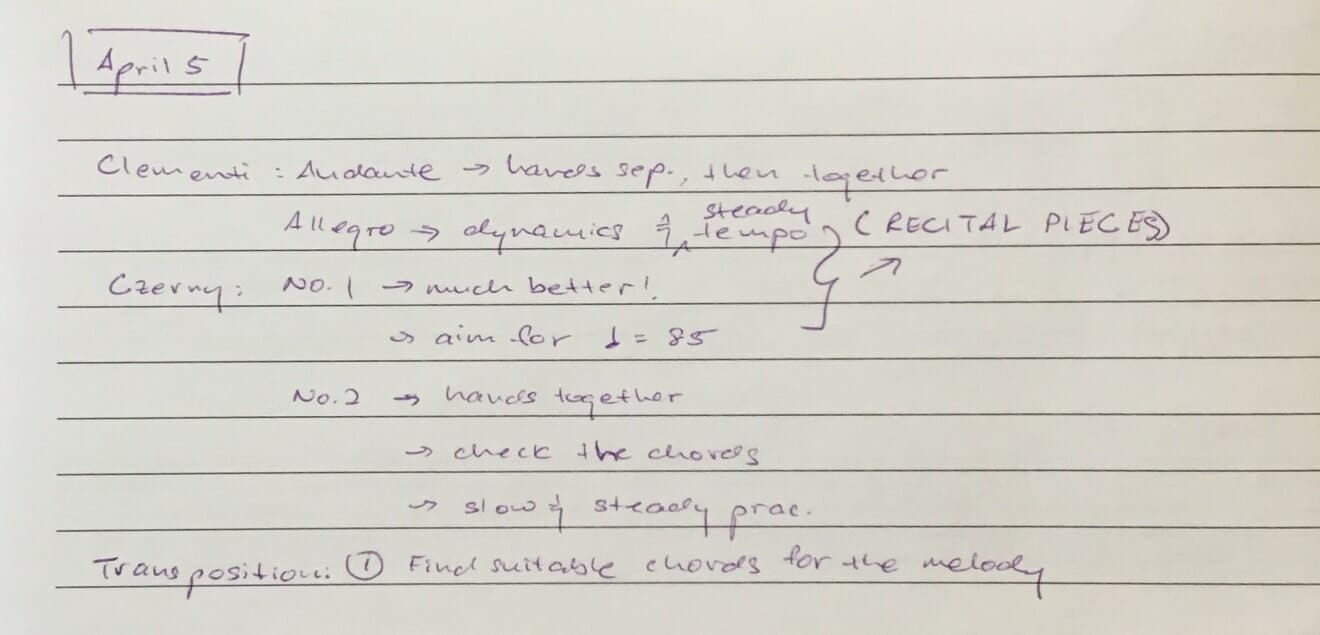 April 5
Clementi : Andante → hands sep., then together
Allegro → dynamics & steady tempo (RECITAL PIECES)
Czerny: No. 1 → much better!
→ aim for ♩ = 85
No. 2 → hands together
→ check the chords
→ slow & steady prac.
Transposition: ① Find suitable chords for the melody